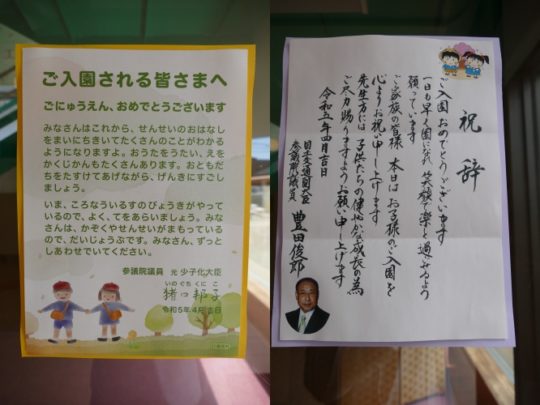 ご入園される皆さまへ
ごにゅうえん、おめでとうございます
みなさんはこれから、せんせいのおはなし
をまいにちきいてたくさんのことがわかる
ようになりますよ。おうたをうたい、えを
かくじかんもたくさんあります。おともだ
ちをたすけてあげながら、げんきにすごし
ましょう。
いま、ころなういるすのびょうきがやって
いるので、よく、てをあらいましょう。みな
さんは、かぞくやせんせいがまもっている
ので、だいじょうぶです。みなさん、ずっと
しあわせでいてください。
参議院議員 元 少子化大臣
いのぐち くにこ
猪口邦子
令和5年4月吉日
祝辞
ご入園おめでとうございます
一日も早く園になれ 笑顔で楽しく過ごせるよう
願っています
ご家族の皆様 本日はお子様のご入園を
心よりお祝い申し上げます
先生方には 子供たちの健やかな成長の為
ご尽力賜りますようお願い申し上げます
令和五年四月吉日
衆議院議員 豊田俊郎